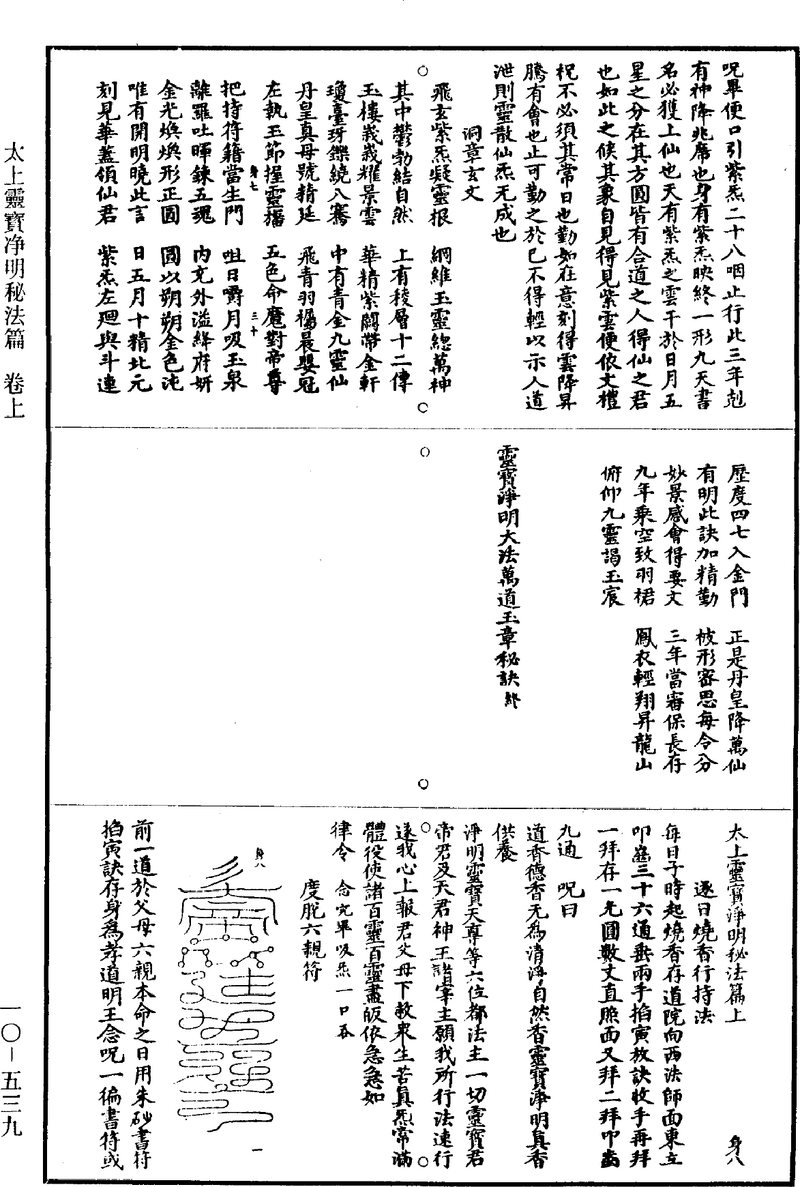 呪畢便口引紫炁二十八咽止行此三年剋
有神降兆席也身有紫炁映終一形九天書
名必獲上仙也天有紫炁之雲干於日月五
星之分在其方圓皆有合道之人得仙之君
也如此之候其象自見得見紫雲便依文禮
祝不必須其常日也勤如在意刻得雲降昇
騰有會也止可勤之於已不得輕以示人道
泄則靈散仙炁无成也
洞章玄文
飛玄紫炁凝靈根 綱維玉靈總萬神
其中鬱勃結自然 上有稜層十二傳
玉樓峩峩耀景雲 華精紫闕帶金軒
瓊臺玡鑠繞八騫 中有青金九靈仙
丹皇真母號精延 飛青羽襦晨嬰冠
左執玉節握靈播 五色命魔對帝尊
身七 三十
把持符籍當生門 咀日嚼月吸玉泉
離羅吐暉鍊五魂 内充外溢絳府妍
金光煥煥形正圓 圓以朔朔金色沌
唯有開明曉此言 日五月十精北元
刻見華蓋領仙君 紫炁左廻與斗連
歷度四七入金門 正是丹皇降萬仙
有明此訣加精勤 被形審思每令分
妙景感會得要文 三年當審保長存
九年乘空致羽裙 鳳衣輕翔昇龍山
俯仰九靈謁玉宸
靈寶淨明大法萬道玉章秘訣終
太上靈寶淨明秘法篇上 身八
逐日燒香行持法
每日子時起燒香存道院向西法師面東立
叩齒三十六通垂兩手掐寅放訣收手再拜
一拜存一光圓數丈直照面又拜二拜叩齒
九通 呪曰
道香德香无為清淨自然香靈寶淨明真香
供養
淨明靈寶天尊等六位都法主一切靈寶君
帝君及天君神王諸宰主願我所行法速行
遂我心上報君父母下救衆生苦真炁常滿
體役使諸百靈百靈盡皈依急急如
律令 念完畢吸炁一口吞
度脫六親符
身八
一
前一道於父母六親本命之日用朱砂書符
掐寅訣存身為孝道明王念呪一徧書符或
太上靈寶净明秘法篇 卷上
一〇－五三九